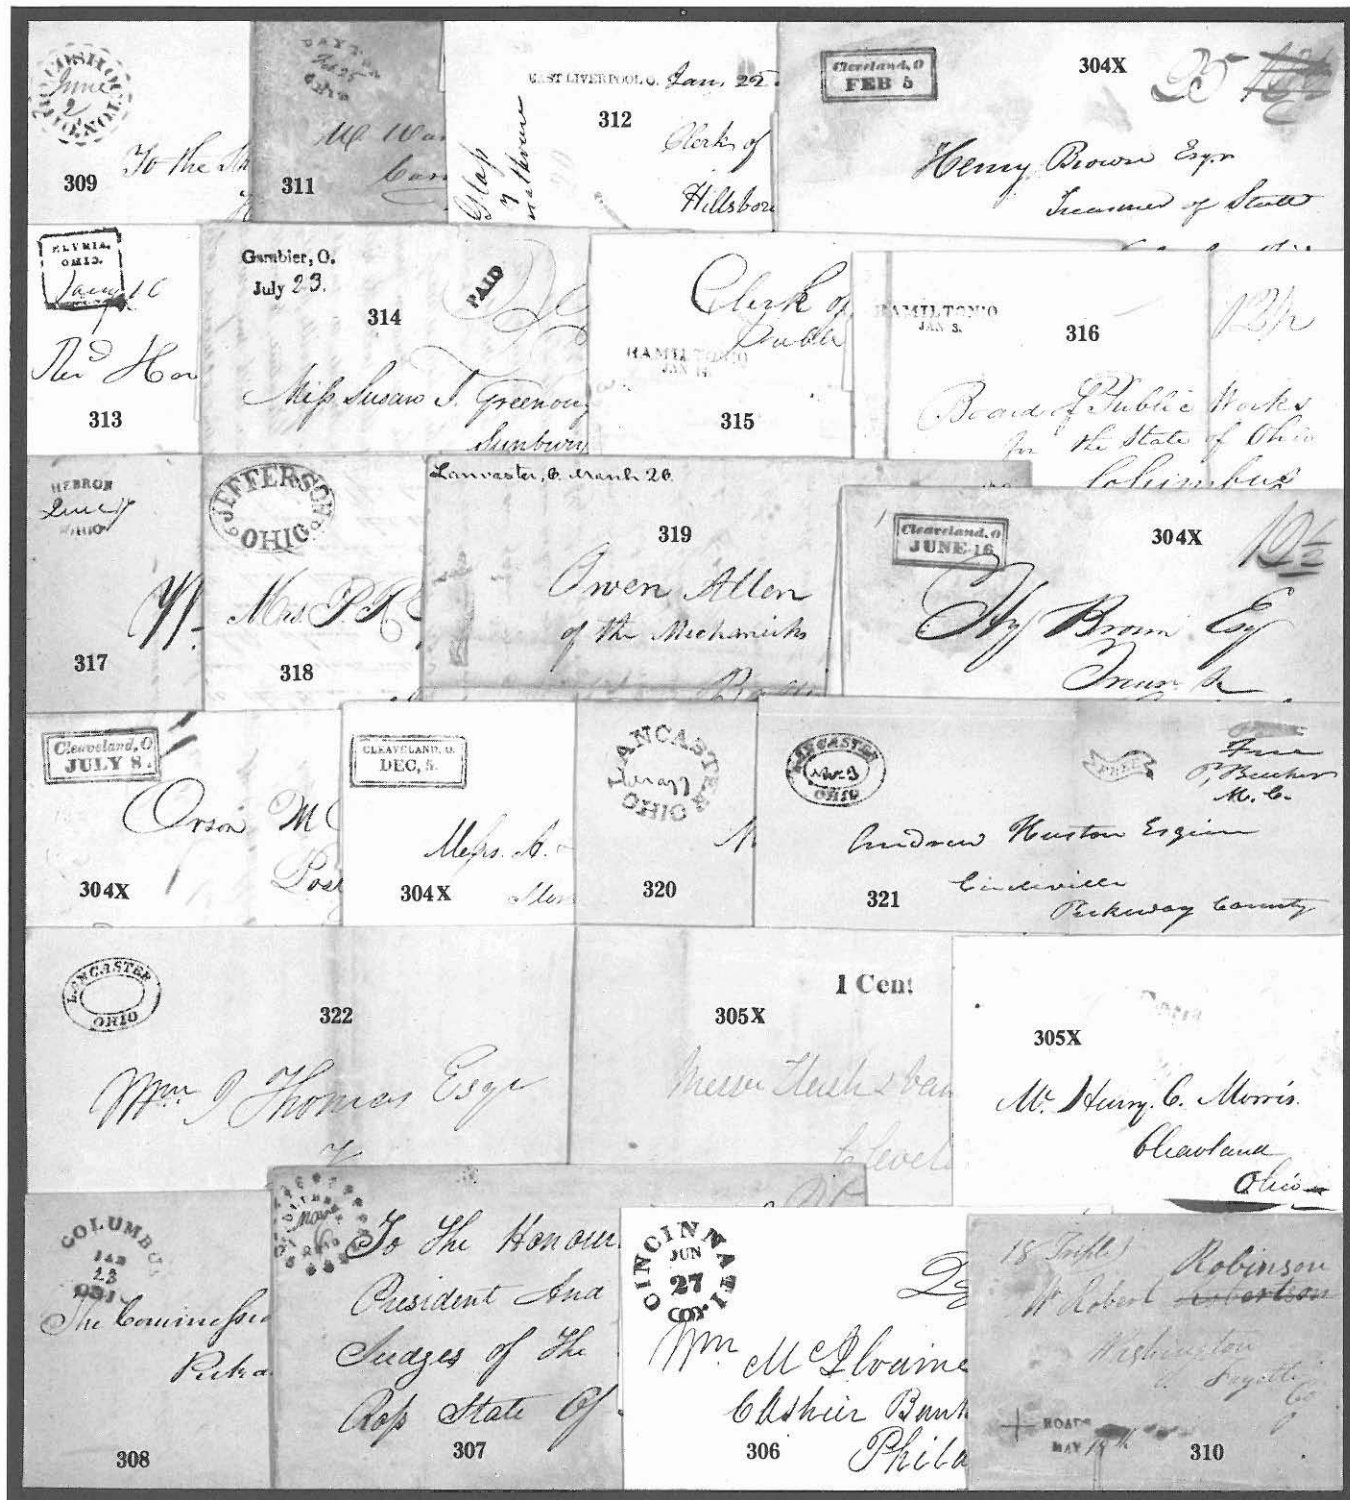 COSHOCTON
June
2
To the
309
DAYTON
Feb 25
OHIO
311
EAST LIVERPOOL O. Jan. 22.
312
Clerk of
Hillsboro
Cleveland, O
FEB 5
304X
25
Henry Brown Esqr
Treasurer of State
ELYRIA,
OHIO.
313
Gambier, O.
July 23.
PAID
314
Miss Susan T. Greenoug
Sunbury
Clerk of
HAMILTON O
JAN 14
315
HAMILTON'O
JAN 3.
316
12½
Board of Public Works
for the State of Ohio
Columbus
HEBRON
June 17
OHIO
317
JEFFERSON
OHIO
Mrs. P R
318
Lancaster, O. March 26.
319
Owen Allen
of the Mechanicks
Cleaveland, O
JUNE 16
304X
12½
Hy Brown Esq
Cleaveland, O
JULY 8.
Orson M C
Post
304X
CLEAVELAND, O.
DEC, 5.
Messrs. A.
304X
LANCASTER
OHIO
320
LANCASTER
Nov 3
OHIO
FREE
Free
P, Beecher
M. C.
Andrew Huston Esquire
321
Circleville
Pickaway County
LANCASTER
OHIO
322
Wm J Thomas Esqr
1 Cent
305X
Clevel
305X
Mr. Henry. C. Morris.
Cleaveland
Ohio
COLUMBUS
JAN
23
OHIO
The Commissio
Picka
308
To The Honour
President And
Judges of The
Ross State Of
307
CINCINNATI
JUN
27
Wm McIlvaine
Cashier Bank
Phila
306
18 Triplet
Robinson
Mr Robert Robertson
Washington
Fayette
Co
ROADS
MAY 18th
310